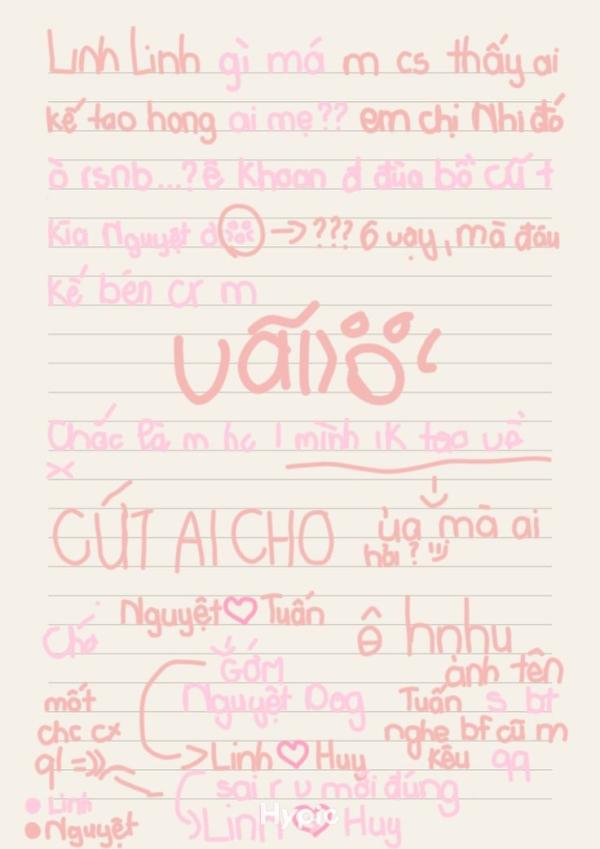 Linh Linh gì má m cs thấy ai
kế tao hong ai mẹ?? em chị Nhi đó
ò rsnb...? ê khoan đ đùa bồ cũ t
kìa Nguyệt ơi -> ??? 6 vậy, mà đấu
kế bên cr m
vãi
Chắc là m hc 1 mình ik tao về
X
CÚT AI CHO
ủa mà ai
hỏi?
Nguyệt ♡ Tuấn
Chớ
ê hnhu
GỚM
anh tên
mốt
Nguyệt Dog
Tuấn s bt
chc cx
nghe bf cũ m
ql =))
-> Linh ♡ Huy
kêu qq
sai r v mới đúng
Linh
Linh ♡ Huy
Hypic
Nguyệt